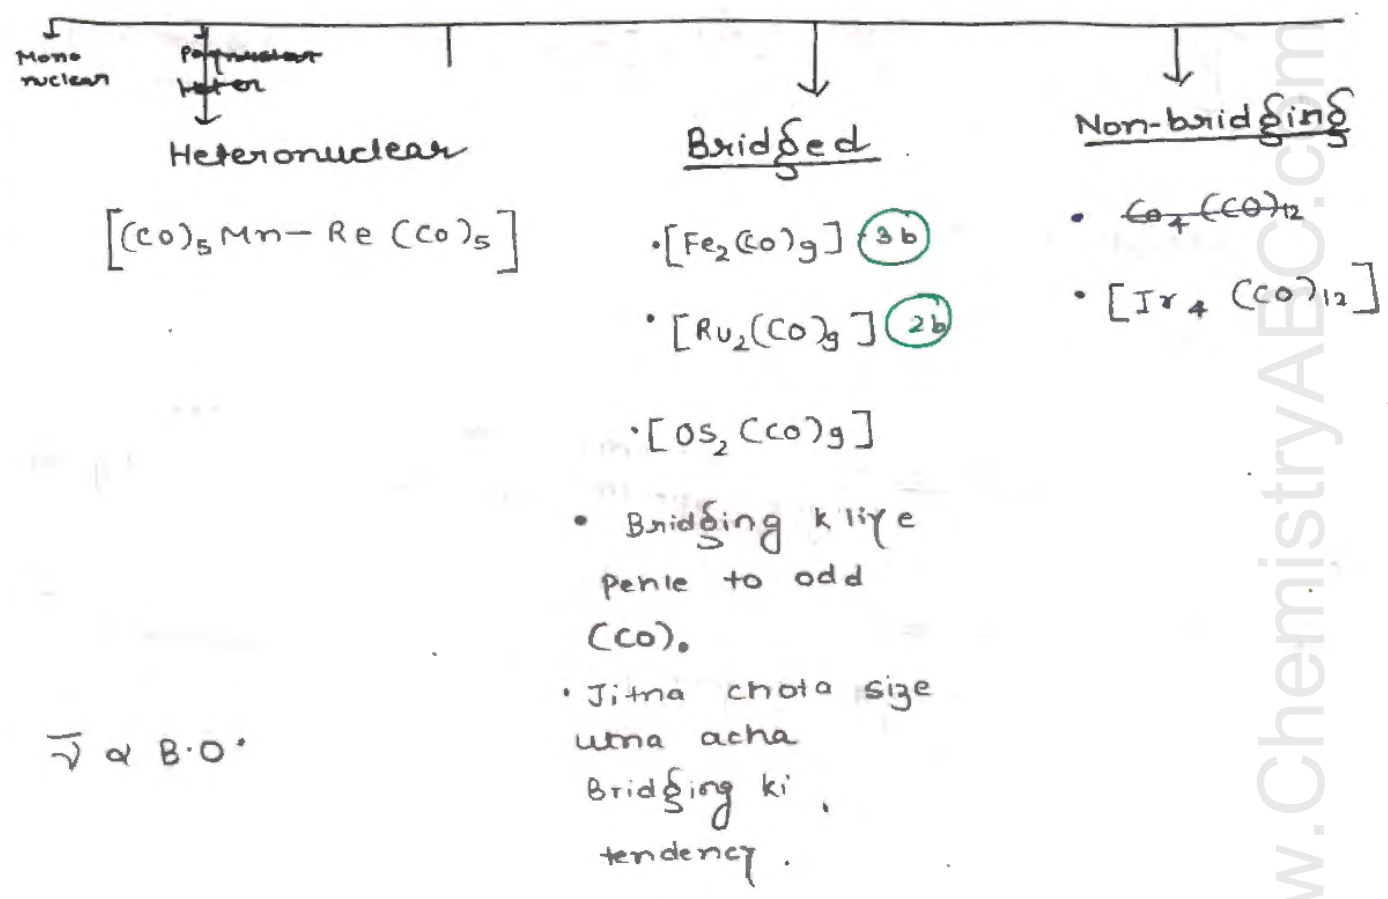 Mono
nuclear
Polynuclear
Heter
Heteronuclear
[(CO)₅ Mn – Re (CO)₅]
ν̄ ∝ B.O.
Bridged
• [Fe₂(CO)₉] 3b
• [Ru₂(CO)₉] 2b
• [OS₂ (CO)₉]
• Bridging k liye
pehle to odd
(CO).
• Jitna chota size
utna acha
Bridging ki
tendency.
Non-bridging
• Co₄ (CO)₁₂
• [Ir₄ (CO)₁₂]
w.ChemistryABC.com